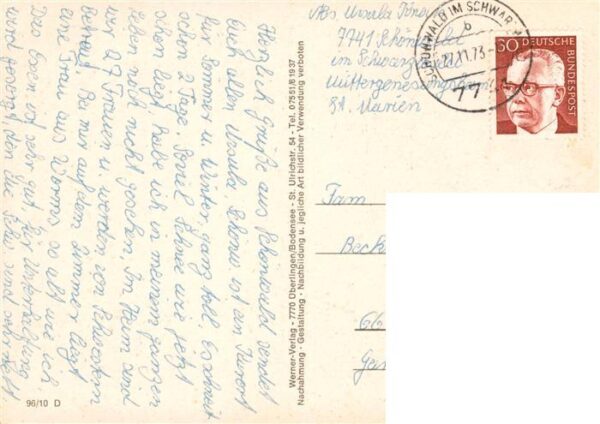 Herzlich Grüße aus Schönwald sendet
Euch allen Ursula. Schönw. ist ein Kurort
für Sommer u. Winter ganz toll. Es schneit
schon 2 Tage. Soviel Schnee wie jetzt
schon liegt habe ich in meinem ganzen
Leben nicht gesehen. Im Heim sind
wir 27 Frauen u. werden von Schwestern
betreut. Bei mir auf dem Zimmer liegt
eine Frau aus Worms, so alt wie ich.
Das Essen ist sehr gut. Für Unterhaltung
wird gesorgt den die sind sehr nett.
96/10 D
Werner-Verlag - 7770 Überlingen/Bodensee - St. Ulrichstr. 54 - Tel. 07551/61937
Nachahmung - Gestaltung - Nachbildung u. jegliche Art bildlicher Verwendung verboten
Abs. Ursula
7741 Schönwald
im Schwarzwald
Müttergenesungsheim
St. Marien
SCHÖNWALD IM SCHWARZW
b
21.11.73-
50 DEUTSCHE
BUNDESPOST
Fam
Beck